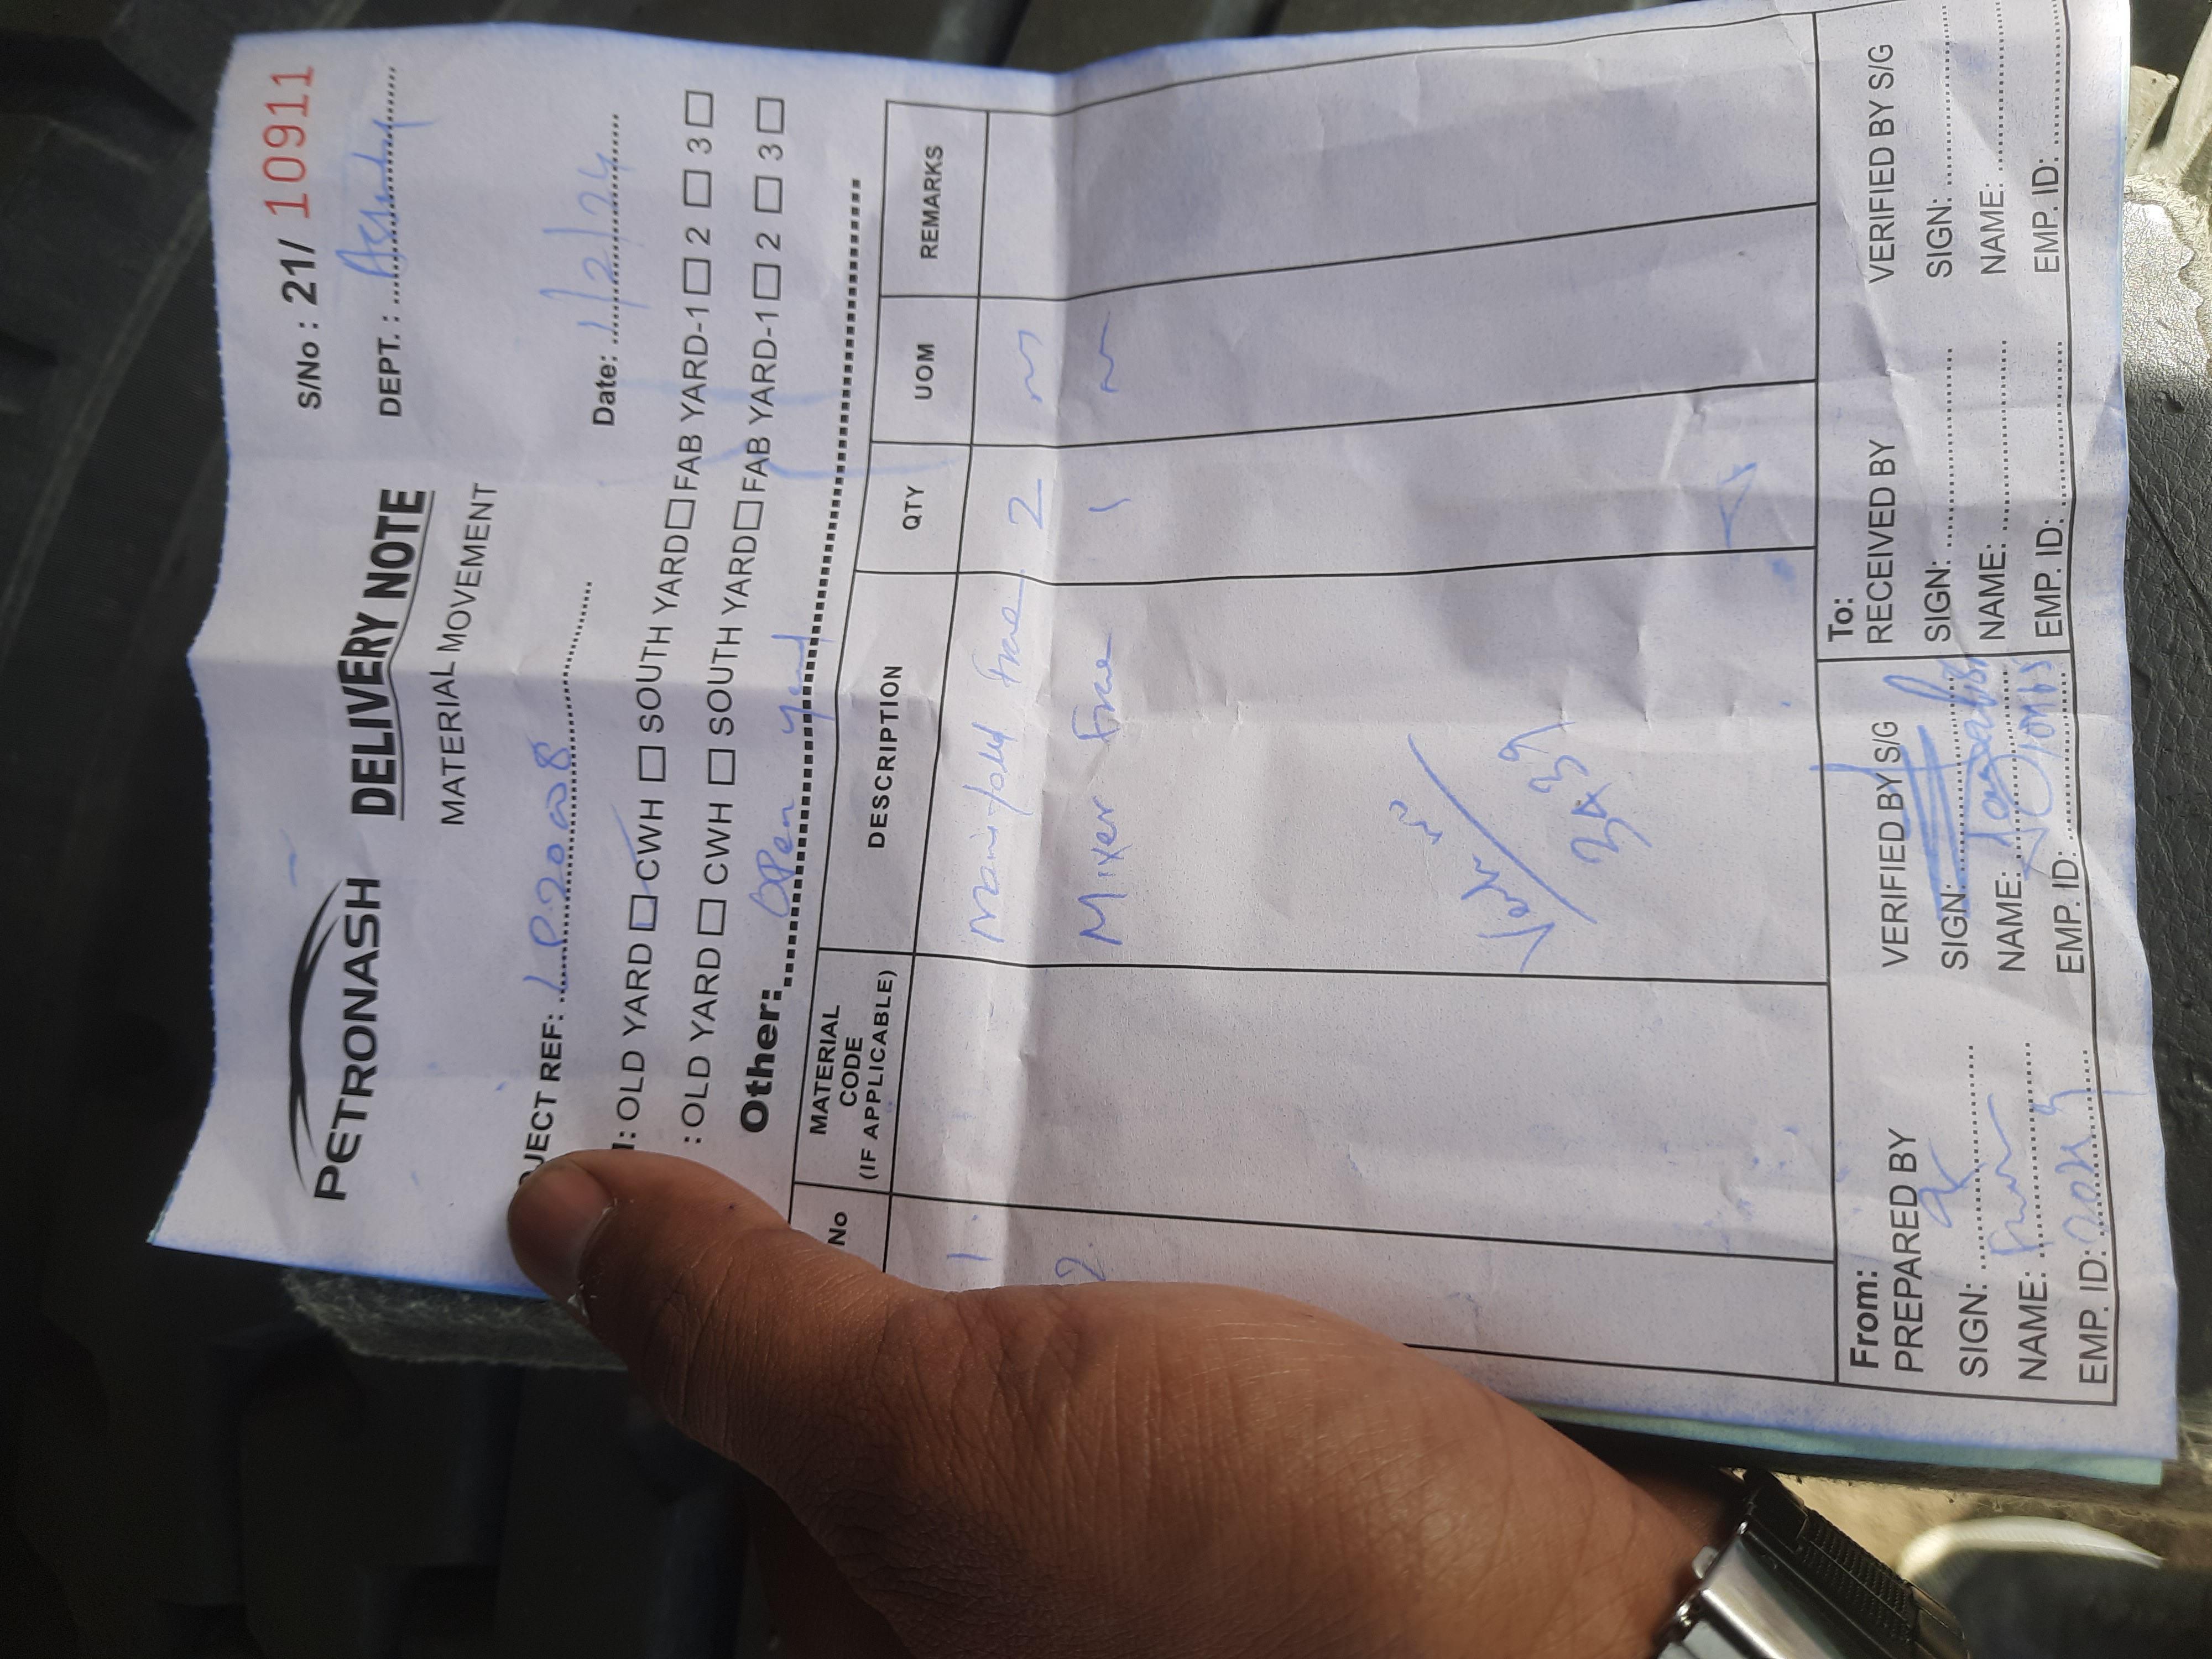 PETRONASH
DELIVERY NOTE
MATERIAL MOVEMENT
S/No : 21/ 10911
DEPT. :
JECT REF: LP20008
Date: 1/2/24
: OLD YARD CWH SOUTH YARD FAB YARD-1 2 3
: OLD YARD CWH SOUTH YARD FAB YARD-1 2 3
Other: Open yard
No MATERIAL CODE (IF APPLICABLE) DESCRIPTION QTY UOM REMARKS
1. Manifold Frae 2
2. Mixer Frae 1
no
3439
From:
PREPARED BY
SIGN:
NAME:
EMP. ID:
VERIFIED BY S/G
SIGN:
NAME:
EMP. ID:
To:
RECEIVED BY
SIGN:
NAME:
EMP. ID:
VERIFIED BY S/G
SIGN:
NAME:
EMP. ID: